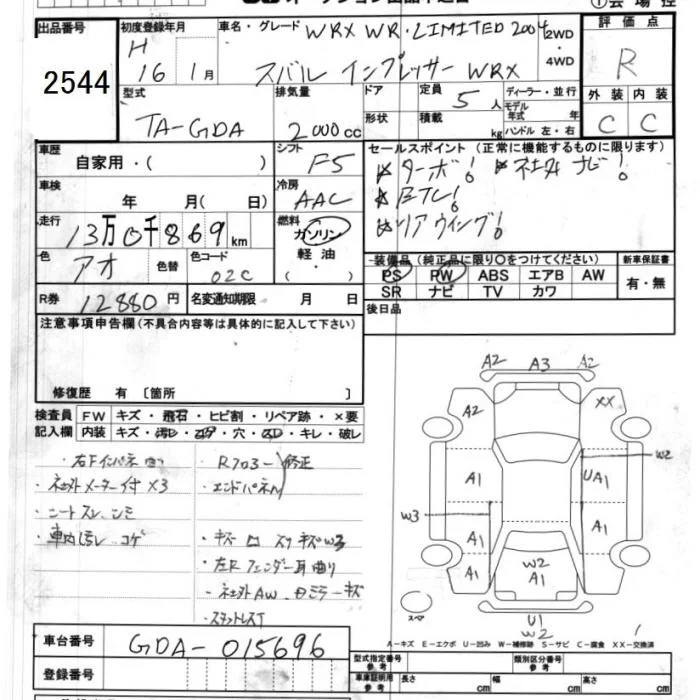 出品番号
2544
初度登録年月
H
16 1月
車名・グレード
WRX WR・LIMITED 2004
スバル インプレッサー WRX
2WD
・
4WD
評価点
R
外装 内装
C C
型式
TA-GDA
排気量
2000cc
ドア
形状
定員 5人
積載 kg
ディーラー・並行
モデル
年式 年
ハンドル 左・右
車歴
自家用・( )
シフト
F5
車検
年 月( 日)
冷房
AAC
走行
13万0千869km
燃料
ガソリン
・
軽油
・
色
アオ
色替
色コード
02C
R券 12880円
名変通知期限 月 日
セールスポイント(正常に機能するものに限ります)
ターボ! 社外ナビ!
ETC!
リアウイング!
装備品(純正品に限り○をつけてください)
PS PW ABS エアB AW
SR ナビ TV カワ
新車保証書
有・無
後日品
注意事項申告欄(不具合内容等は具体的に記入して下さい)
修復歴 有 〔箇所 〕
検査員
記入欄
FW キズ・飛石・ヒビ割・リペア跡・×要
内装 キズ・汚レ・コゲ・穴・スレ・キレ・破レ
・右Fインパネ凹
・社外メーター付×3
・シートスレ、シミ
・車内汚レ コゲ
・Rフロアー 修正
・エンドパネル
・キズ 凹 スリキズW3
・左Rフェンダー耳曲り
・社外AW、Dミラーキズ
・スタットレスT
A2 A3 A2
A2 XX
W2
A1 UA1
W3
A1 A1
A1 A1
W2
A1
スペア
U1
W2
A-キズ E-エクボ U-凹み W-補修跡 S-サビ C-腐食 XX-交換済
車台番号 GDA-015696
登録番号
型式指定番号
参考
類別区分番号
参考
車庫証明用
参考
長さ cm 幅 cm 高さ cm